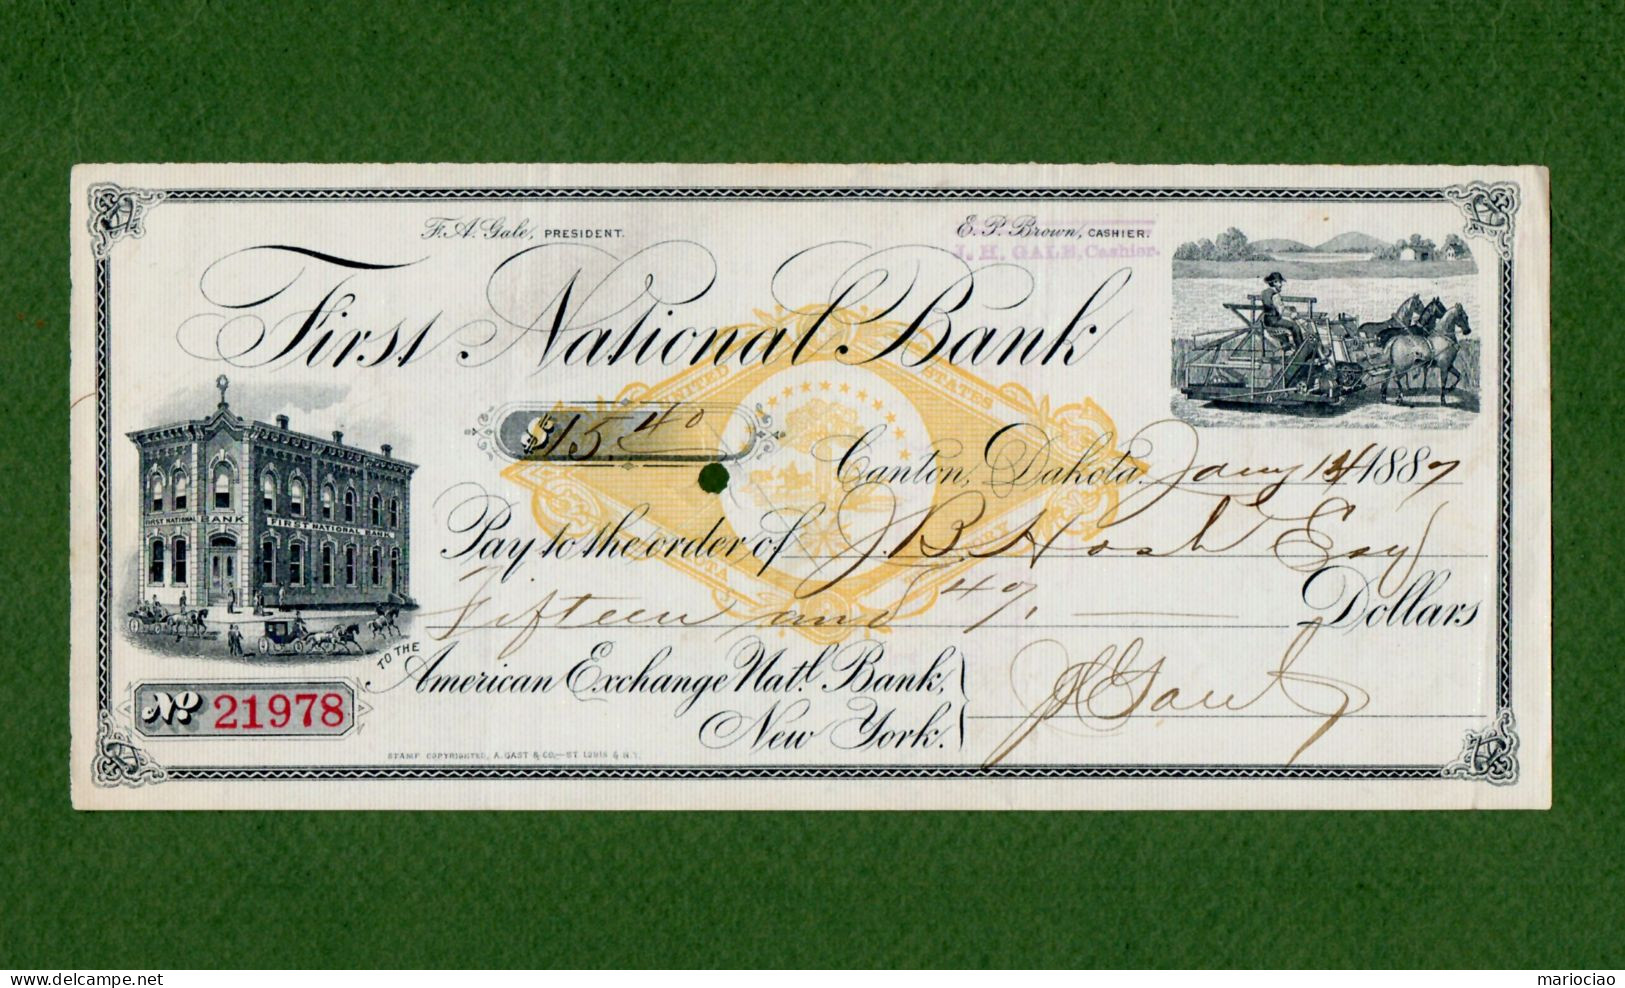 F. A. Gale, PRESIDENT.
E. P. Brown, CASHIER.
J. H. GALE, Cashier.
First National Bank
UNITED STATES
$15.40
Canton, Dakota. Jany 14 1887
FIRST NATIONAL BANK FIRST NATIONAL BANK
Pay to the order of J. B. Hosh Esq
Fifteen and 40/ Dollars
TO THE
American Exchange Natl. Bank,
New York.
No 21978
STAMP COPYRIGHTED, A. GAST & CO.—ST LOUIS & N.Y.
mariociao